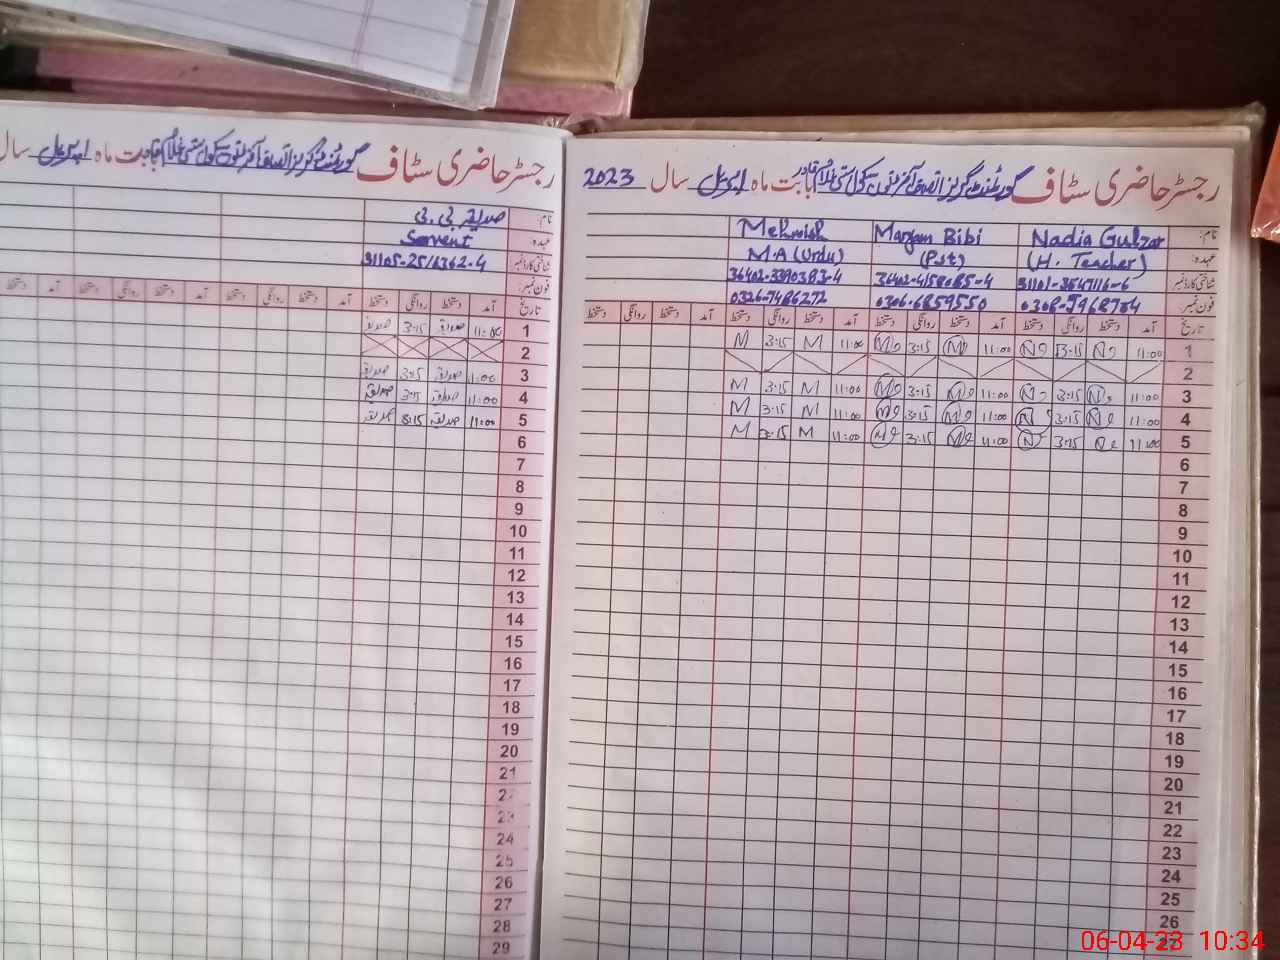 رجسٹر حاضری سٹاف گورنمنٹ گرلز انصاف آفٹر نون سکول بستی غلام قادر بابت ماہ اپریل سال 2023
نام: Nadia Gulzar Maryam Bibi Mehwish
عہدہ: (H. Teacher) (Pst) M.A (Urdu)
شناختی کارڈ نمبر 31101-3547116-6 36402-4158085-4 36402-3390383-4
فون نمبر: 0306-6859550 0326-7486272
تاریخ آمد دستخط روانگی دستخط آمد دستخط روانگی دستخط آمد دستخط روانگی دستخط آمد دستخط روانگی دستخط
1 11:00 N 3:15 N 11:00 M 3:15 M 11:00 M 3:15 M
2
3 11:00 N 3:15 N 11:00 M 3:15 M 11:00 M 3:15 M
4 11:00 N 3:15 N 11:00 M 3:15 M 11:00 M 3:15 M
5 11:00 N 3:15 N 11:00 M 3:15 M 11:00 M 3:15 M
6
7
8
9
10
11
12
13
14
15
16
17
18
19
20
21
22
23
24
25
26
27
رجسٹر حاضری سٹاف گورنمنٹ گرلز انصاف آفٹر نون سکول بستی غلام قادر بابت ماہ اپریل سال
نام: صدیقہ بی بی
عہدہ: Servent
شناختی کارڈ نمبر
فون نمبر:
تاریخ آمد دستخط روانگی دستخط آمد دستخط روانگی دستخط آمد دستخط روانگی دستخط آمد دستخط
1 11:00 صدیقہ 3:15 صدیقہ
2
3 11:00 صدیقہ 3:15 صدیقہ
4 11:00 صدیقہ 3:15 صدیقہ
5 11:00 صدیقہ 3:15 صدیقہ
6
7
8
9
10
11
12
13
14
15
16
17
18
19
20
21
22
23
24
25
26
27
28
29
06-04-23 10:34